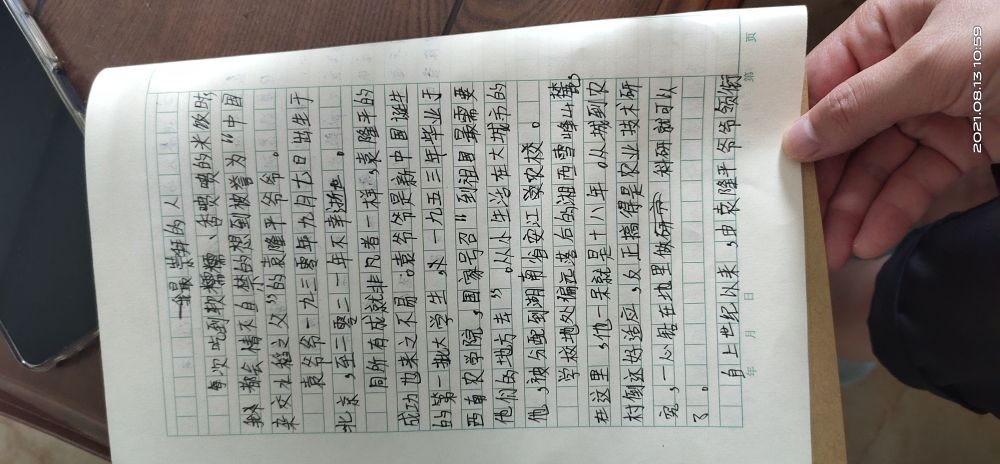 最崇拜的人
每次吃到软糯糯、香喷喷的米饭时
都会情不自禁的想到被誉为“中国
杂交水稻之父”的袁隆平爷爷。
袁爷爷一九三零年九月七日出生于
北京,至二零二一年不幸逝世。
同所有成就非凡者一样,袁隆平的
成功也来之不易:袁爷爷是新中国诞生
的第一批大学生,一九五三年毕业于
西南农学院,国家号召“到祖国最需要
他们的地方去”。从小生活在大城市的
他,被分配到湖南省安江农校。
学校地处偏远落后的湖西雪峰山麓,
在这里,他一呆就是十八年。从城到农
村倒还好适应,反正搞得是农业技术研
究,一心贴在地里做科研就可以
了。
自上世纪以来,由袁隆平爷爷领衔
年 月 日 第 页
2021.08.13 10:59